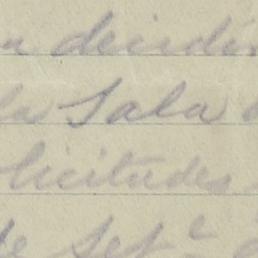 a decidir
la Sala
licitudes
de Set.e